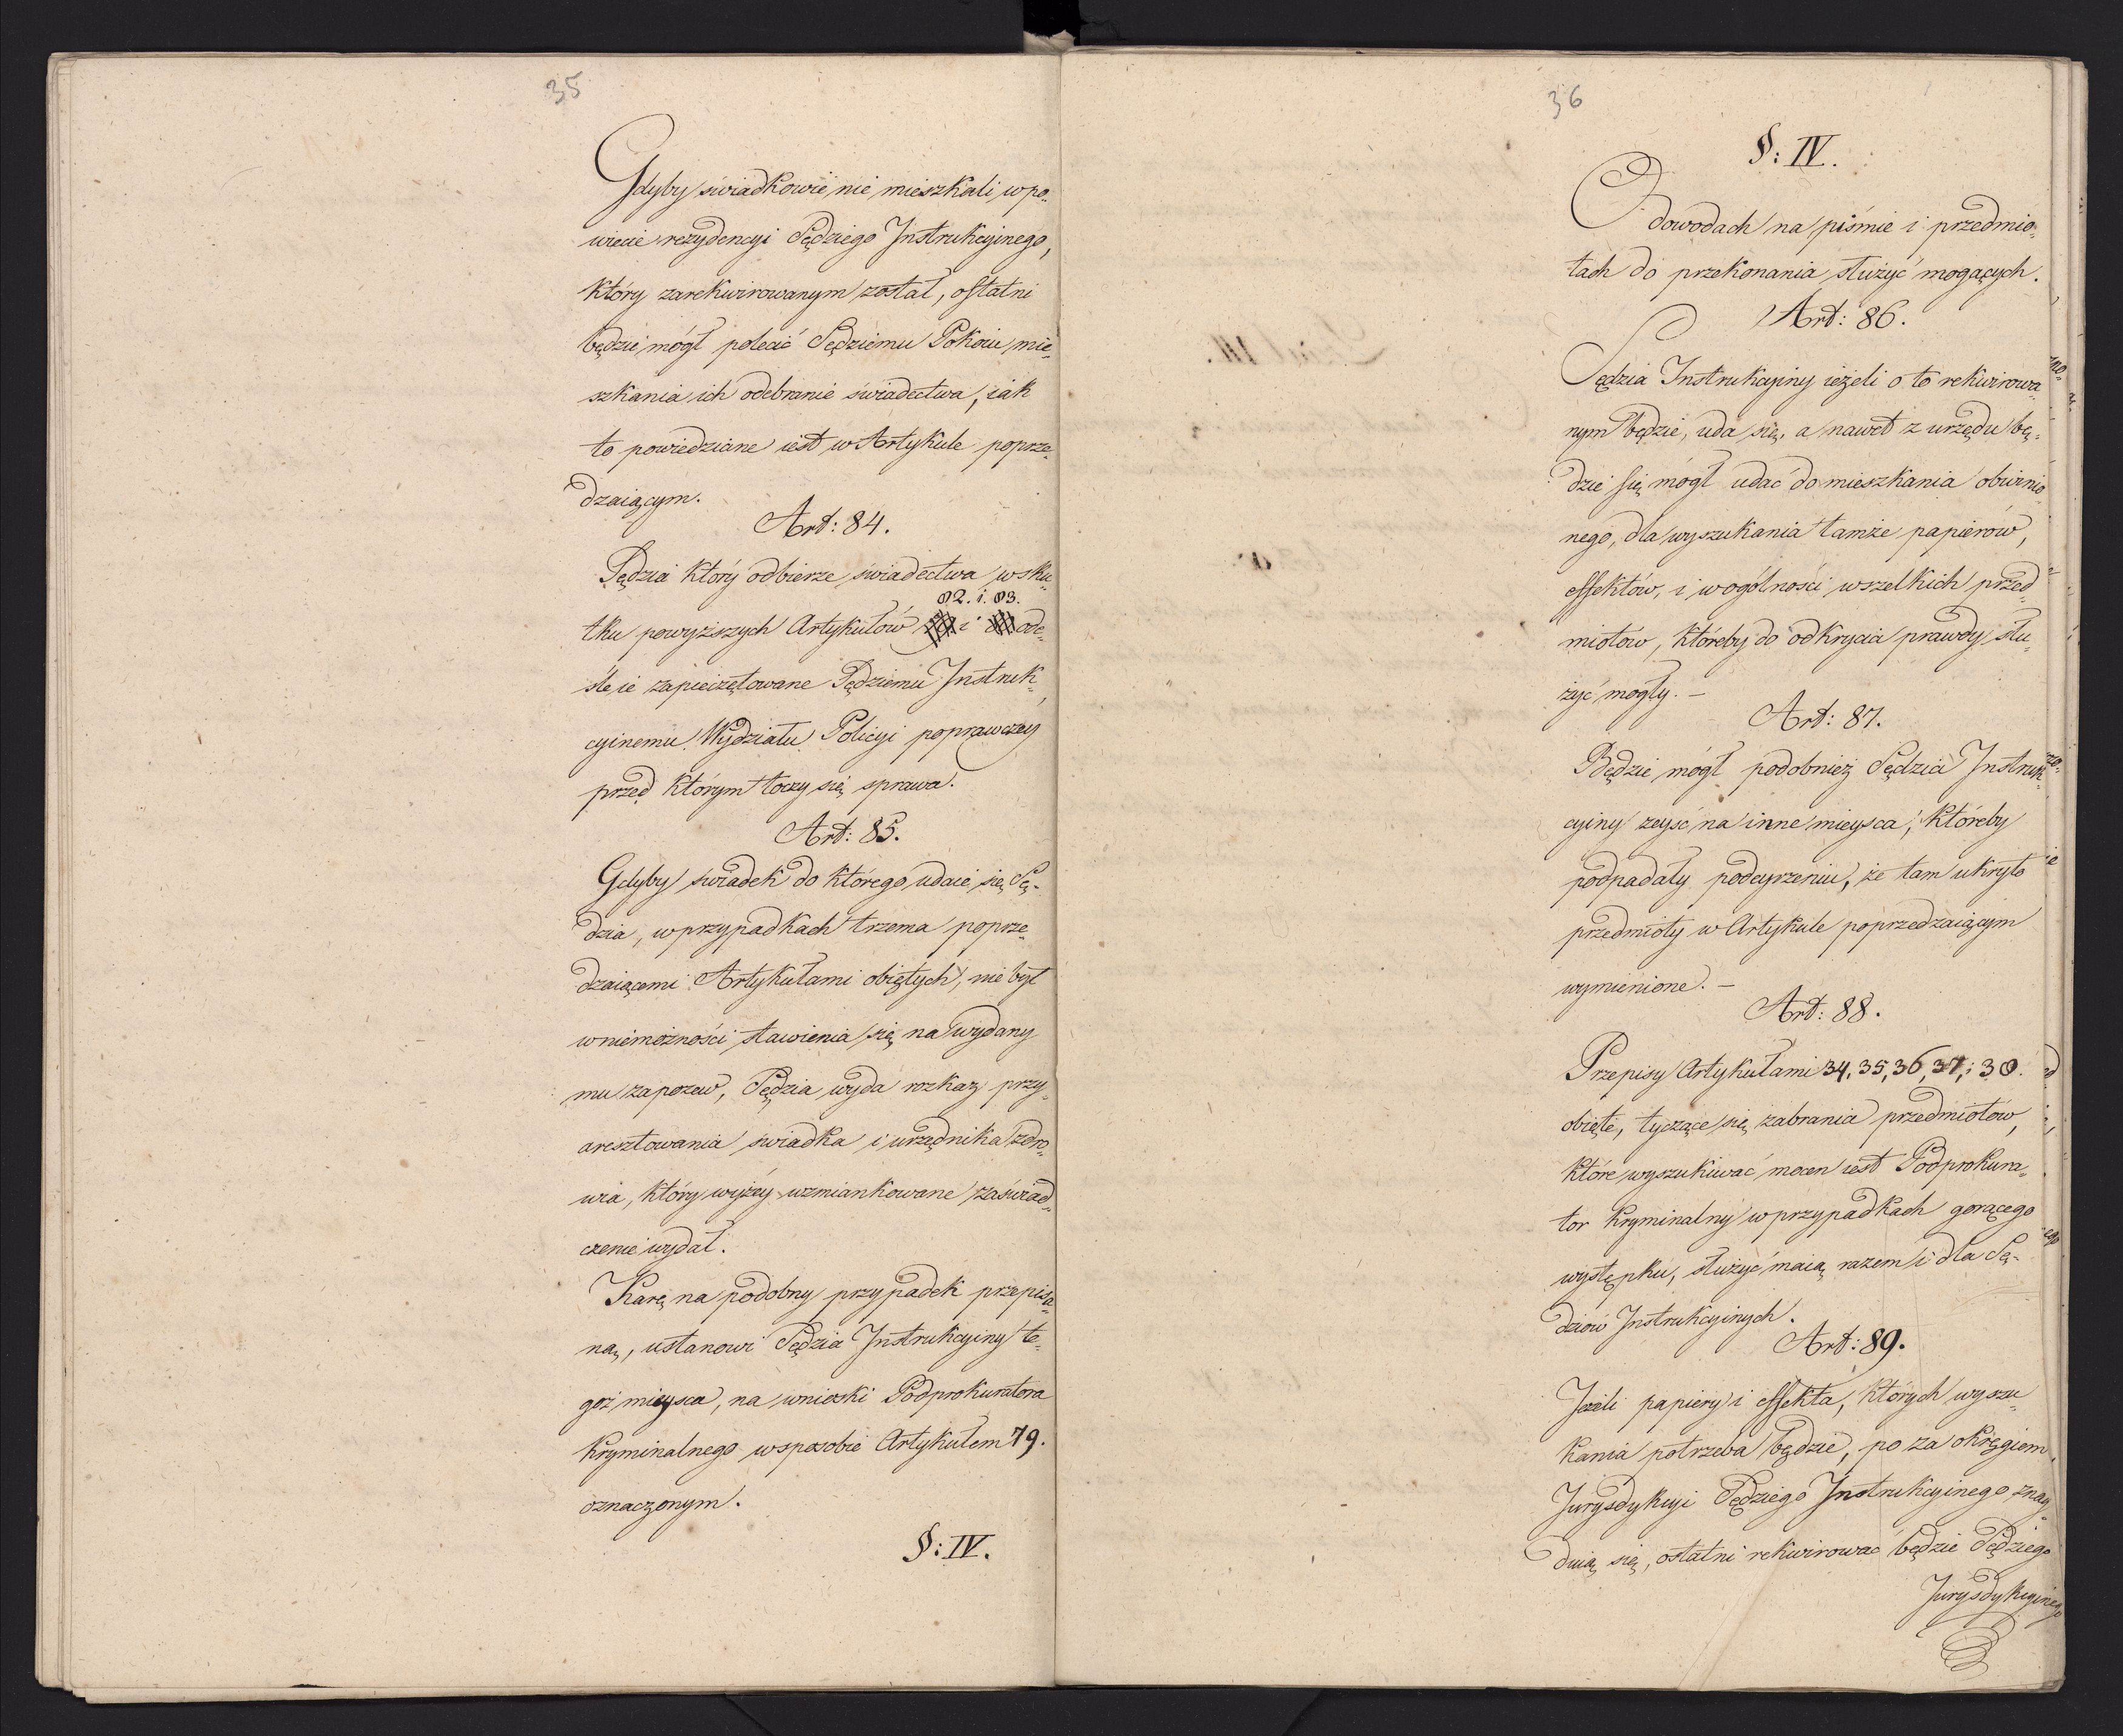 35
Gdyby świadkowie nie mieszkali w po„
wiecie rezydencyi Sędziego Instrukcyinego,
który zarekwirowanym został, ostatni
będzie mógł polecić Sędziemu Pokoiu mie„
szkania ich odebranie świadectwa, iak
to powiedziane iest w Artykule poprze„
dzaiącym.
Art: 84.
Sędzia który odbierze świadectwa w sku„
82. i 83.
tku powyższych Artykułów i ode„
śle ie zapieczętowane Sędziemu Instruk„
cyinemu Wydziału Policyi poprawczey
przed którym toczy się sprawa.
Art: 85.
Gdyby świadek do którego udaie się Sę„
dzia, w przypadkach trzema poprze„
dzaiącemi Artykułami obiętych, nie był
w niemożności stawienia się na wydany
mu zapozew, Sędzia wyda rozkaz przy„
aresztowania świadka i urzędnika zdro„
wia, który wyżey wzmiankowane zaświad„
czenie wydał.
Karę na podobny przypadek przepisa„
ną, ustanowi Sędzia Instrukcyiny te„
goż mieysca, na wnioski Podprokuratora
Kryminalnego w sposobie Artykułem 79.
oznaczonym.
§: IV.
36
§: IV.
O dowodach na piśmie i przedmio„
tach do przekonania służyć mogących.
Art: 86.
Sędzia Instrukcyiny ieżeli o to rekwirowa„
nym będzie, uda się, a nawet z urzędu bę„
dzie się mógł udać do mieszkania obwinio„
nego, dla wyszukania tamże papierów,
effektów, i w ogólności wszelkich przed„
miotów, któreby do odkrycia prawdy słu„
żyć mogły. –
Art: 87.
Będzie mógł podobnież Sędzia Instruk„
cyiny zeyść na inne mieysca, któreby
podpadały podeyrzeniu, że tam ukryto
przedmioty w Artykule poprzedzaiącym
wymienione. –
Art: 88.
Przepisy Artykułami 34, 35, 36, 37, i 38.
obięte, tyczące się zabrania przedmiotów,
które wyszukiwać mocen iest Podprokura„
tor Kryminalny w przypadkach gorącego
występku, służyć maią razem i dla Sę„
dziów Instrukcyinych.
Art: 89.
Jeżeli papiery i effekta, których wyszu„
kania potrzeba będzie, po za okręgiem
Jurysdykcyi Sędziego Instrukcyinego znay„
duią się, ostatni rekwirować będzie Sędziego
Jurysdykcyinego